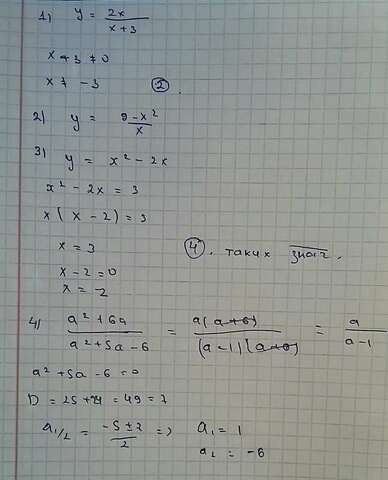 1) y = 2x / x+3
x + 3 ≠ 0
x ≠ -3 ②.
2) y = 9-x² / x
3) y = x² - 2x
x² - 2x = 3
x(x - 2) = 3
x = 3 ④. таких знач.
x - 2 = 0
x = -2
4) a² + 6a / a² + 5a - 6 = a(a+6) / (a-1)(a+6) = a / a-1
a² + 5a - 6 = 0
D = 25 + 24 = 49 = 7
a1/2 = -5 ± 7 / 2 => a₁ = 1
a₂ = -6